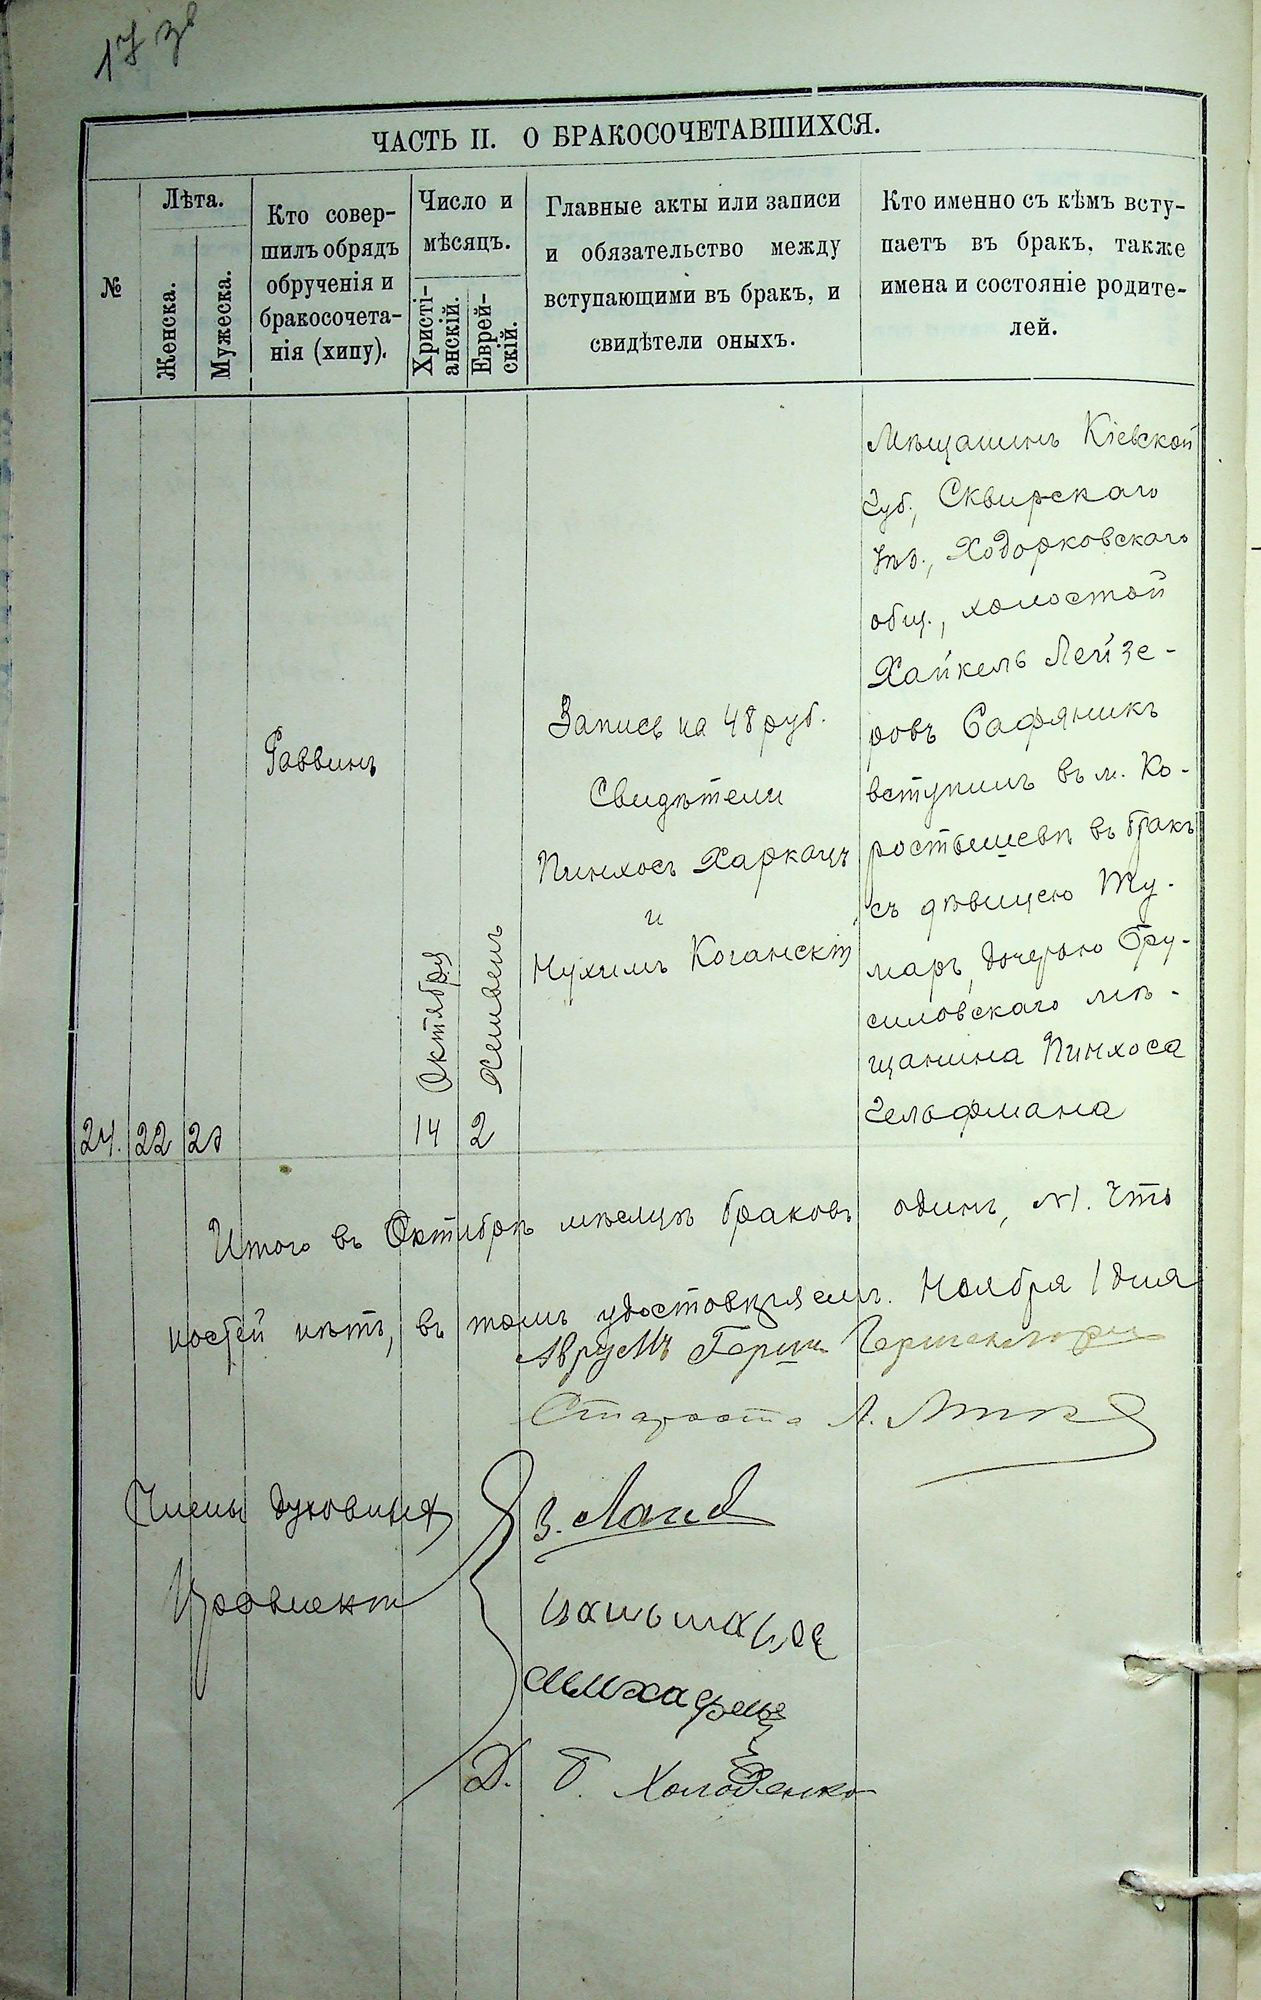 17 зв
ЧАСТЬ II. О БРАКОСОЧЕТАВШИХСЯ.
№
Лѣта.
Женска.
Мужеска.
Кто совер-
шилъ обрядъ
обрученія и
бракосочета-
нія (хипу).
Число и
мѣсяцъ.
Христі-
анскій.
Еврей-
скій.
Главные акты или записи
и обязательство между
вступающими въ бракъ, и
свидѣтели оныхъ.
Кто именно съ кѣмъ всту-
паетъ въ бракъ, также
имена и состояніе родите-
лей.
24.
22
Раввинъ
Октября
14
Хешвенъ
2
Запись на 48 руб.
Свидѣтели
Пинхосъ Харкацъ
и
Нухимъ Коганскій
Мѣщанинъ Кіевской
Губ., Сквирскаго
Уѣз., Ходорковскаго
общ., холостой
Хайкель Лейзе-
ровъ Сафяникъ
вступилъ въ м. Ко-
ростышевѣ въ бракъ
съ дѣвицею Ту-
маръ, дочерью Бру-
силовскаго мѣ-
щанина Пинхоса
Гельфмана
Итого въ Октябрѣ мѣсяцѣ браковъ одинъ, №1. Что
ностей нѣтъ, въ томъ удостовѣряемъ. Ноября 1 дня
Аврумъ Герш
Староста Л.
Члены духовныя
З. Ланд
Правленія
Д. Б. Холоденко